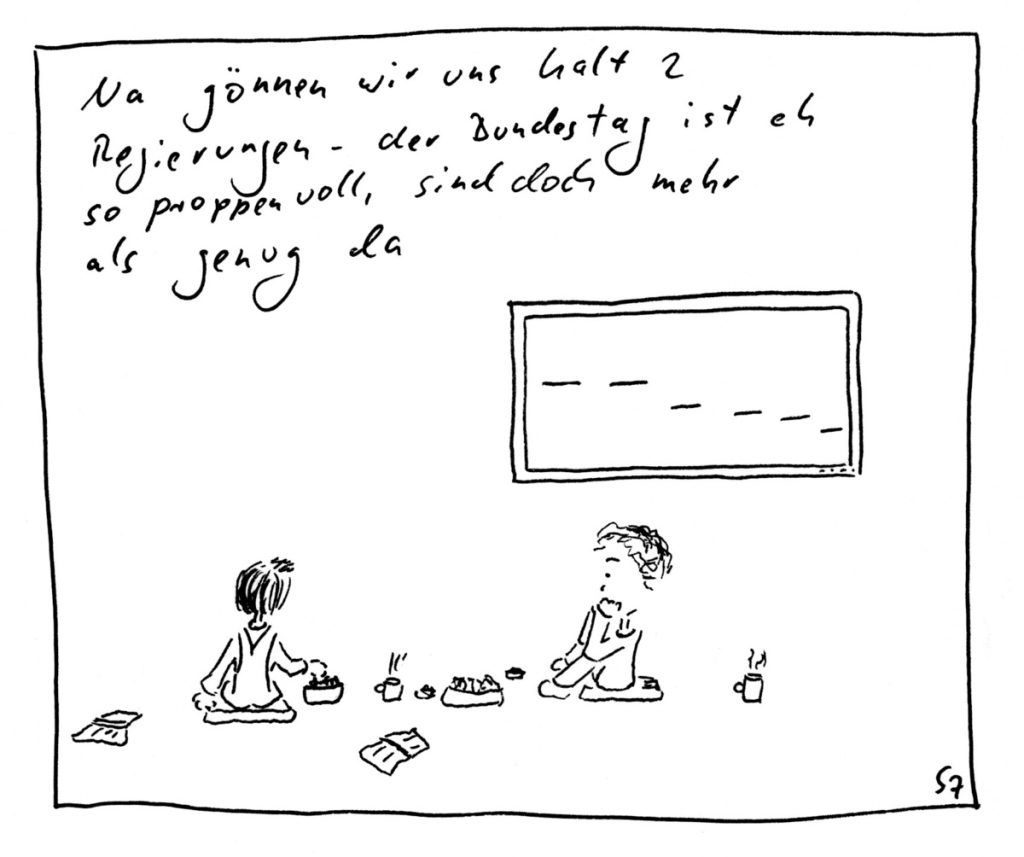 Na gönnen wir uns halt 2
Regierungen - der Bundestag ist eh
so proppenvoll, sind doch mehr
als genug da
S7